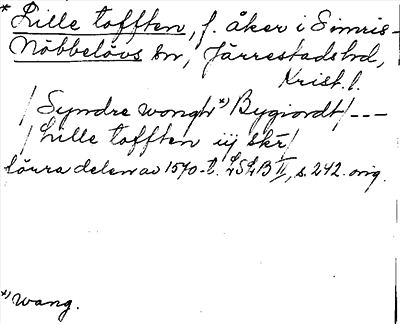 * Lille tofften, f. åker i Simris-
Nöbbelövs sn, Järrestads hd,
Krist. l.
/ Syndre wongh *) Bygiordt / ---
/ Lille tofften iij skr /
Lönra delen av 1570-t. LSLB II, s. 242. orig.
*) wang.